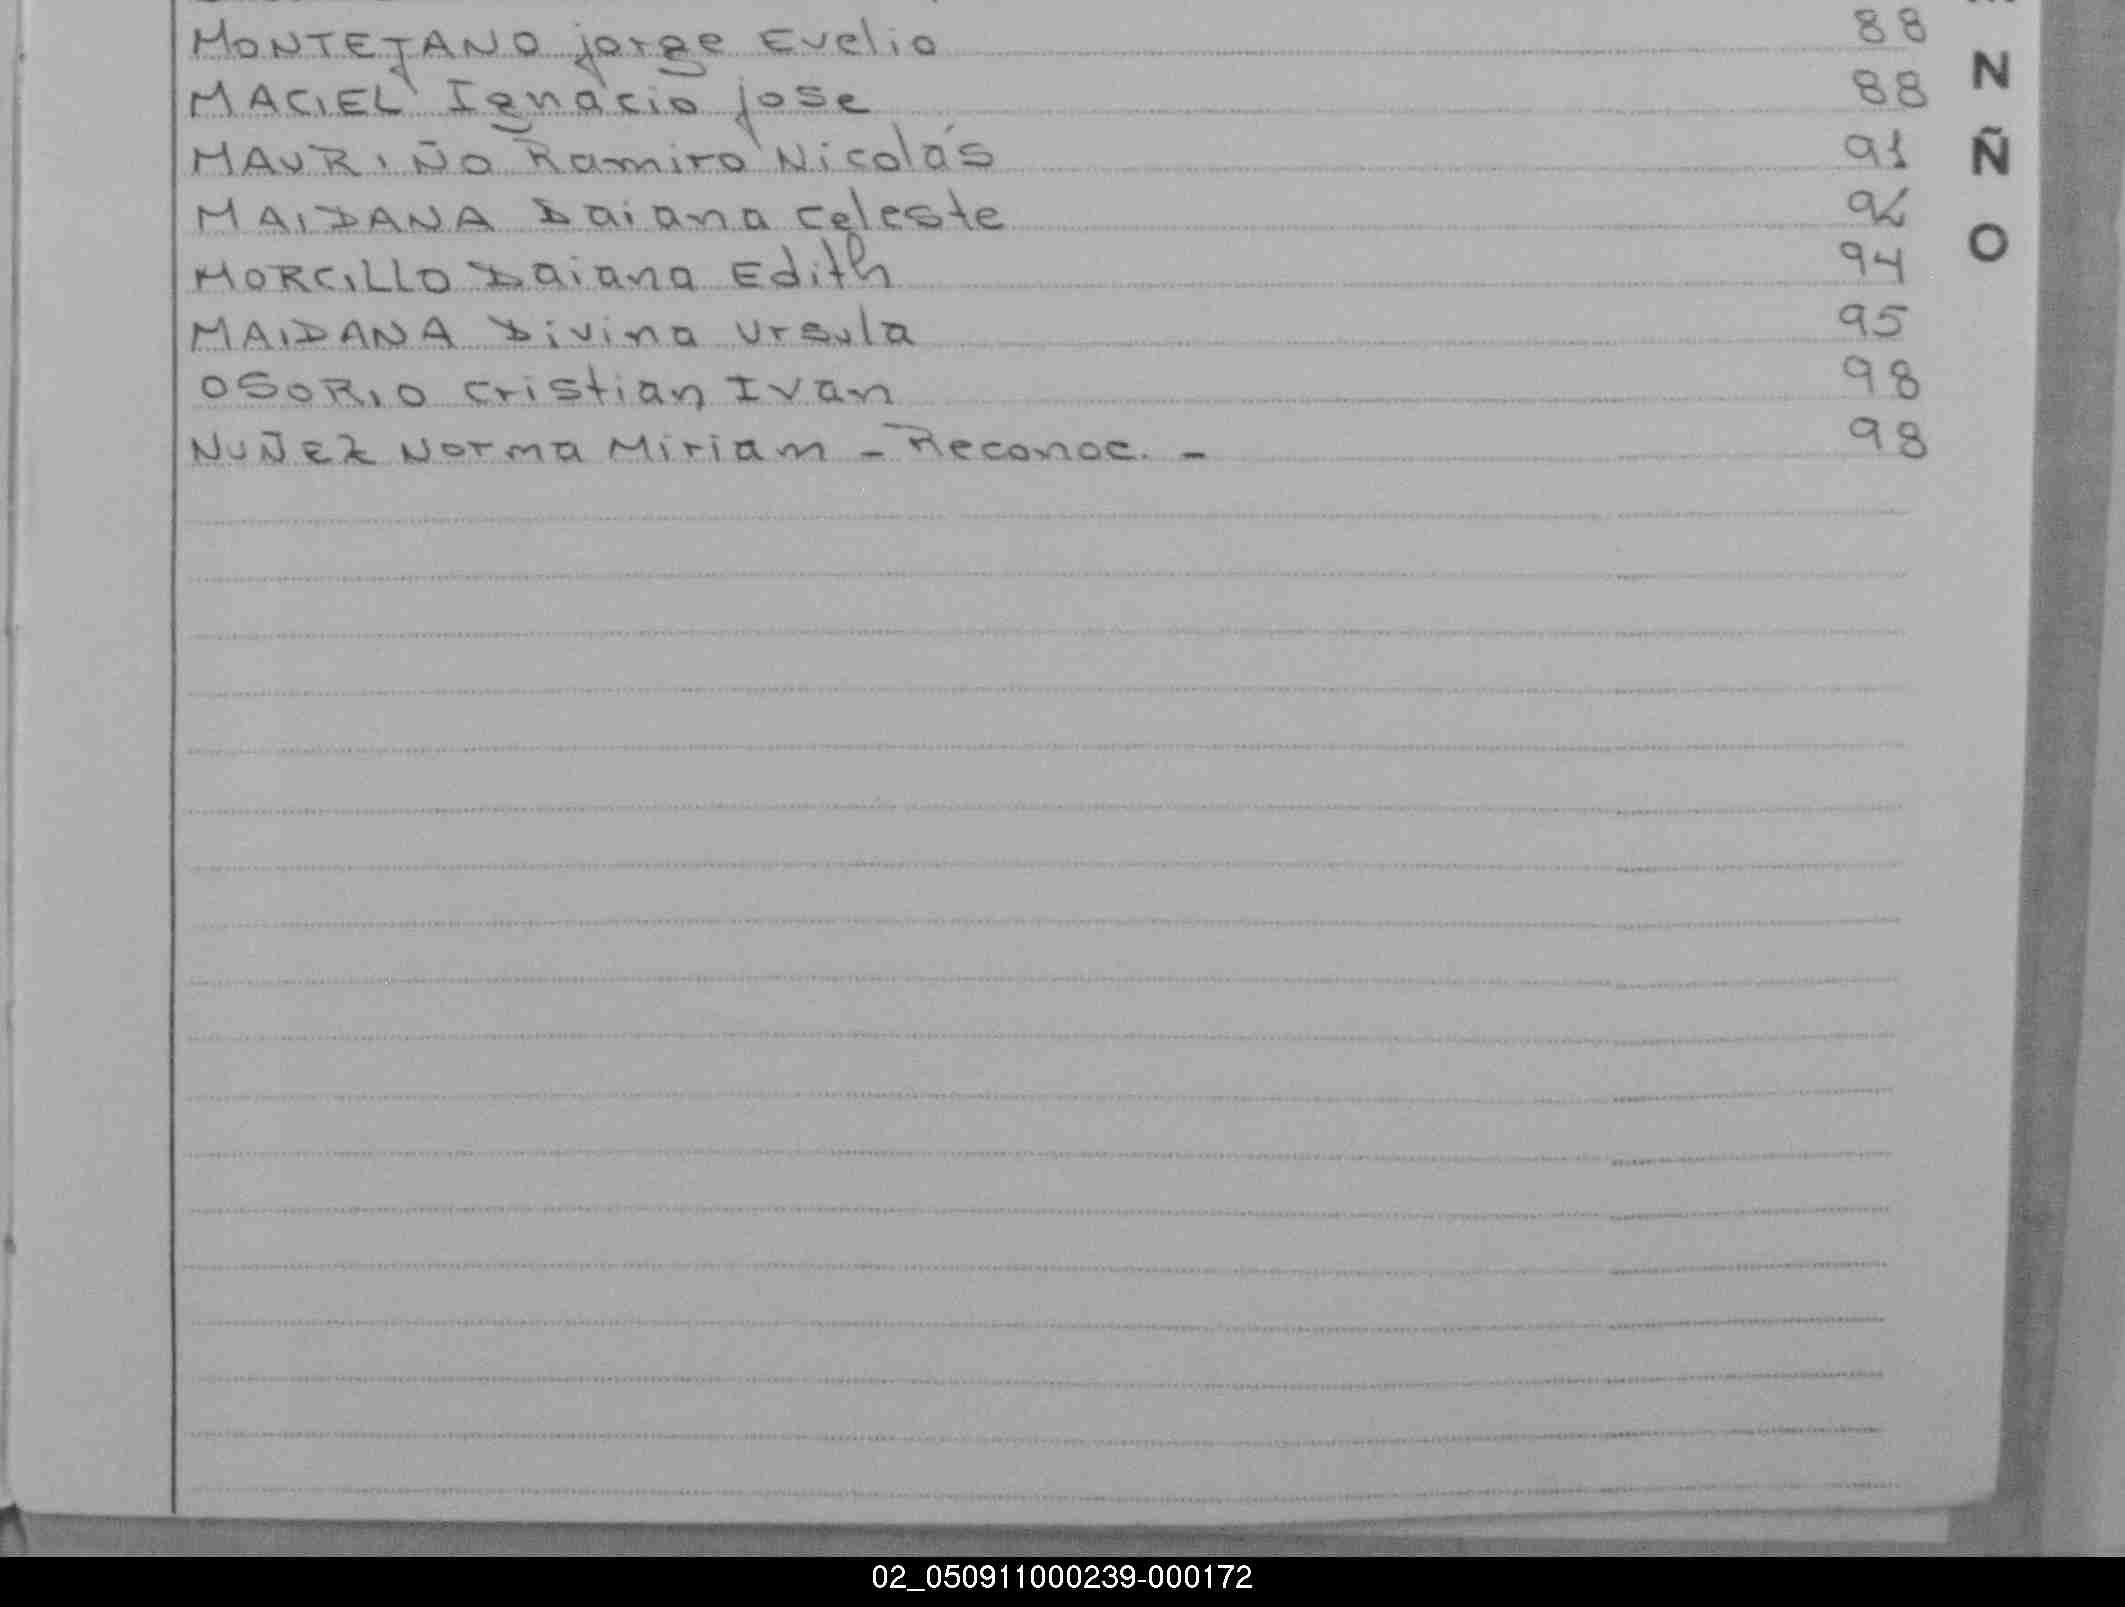 MONTEJANO jorge Evelio 88
MACIEL Ignacio jose 88
MAURIÑO Ramiro Nicolás 91
MAIDANA Daiana celeste
MORCILLO Daiana Edith 94
MAIDANA Divina Ursula 95
OSORIO cristian Ivan 98
NUÑEZ Norma Miriam - Reconoc. - 98
N
Ñ
O
02_050911000239-000172